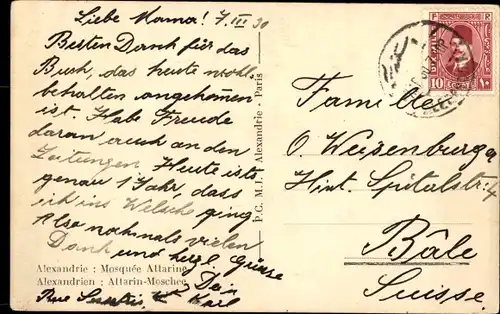 Liebe Mama! 7.III 30
Besten Dank für das
Buch, das heute wohl-
behalten angekommen
ist. Habe Freude
daran auch an den
Zeitungen. Heute ists
genau 1 Jahr, dass
ich ins Welsche ging
Also nochmals vielen
Dank und herzl. Grüsse
Dein
Karl
Rue
Alexandrie : Mosquée Attarine
Alexandrien : Attarin-Moschee
P.C. M.J. Alexandrie - Paris
Familie
O. Weisenburg
Hint. Spitalstr.
Bâle
Suisse
10